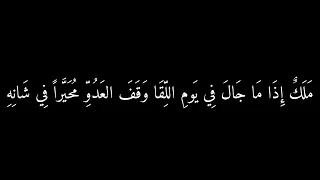 مَلَكٌ إِذَا مَا جَالَ فِي يَومِ اللِّقَا وَقَفَ العَدُوِّ مُحَيَّراً فِي شَانِهِ